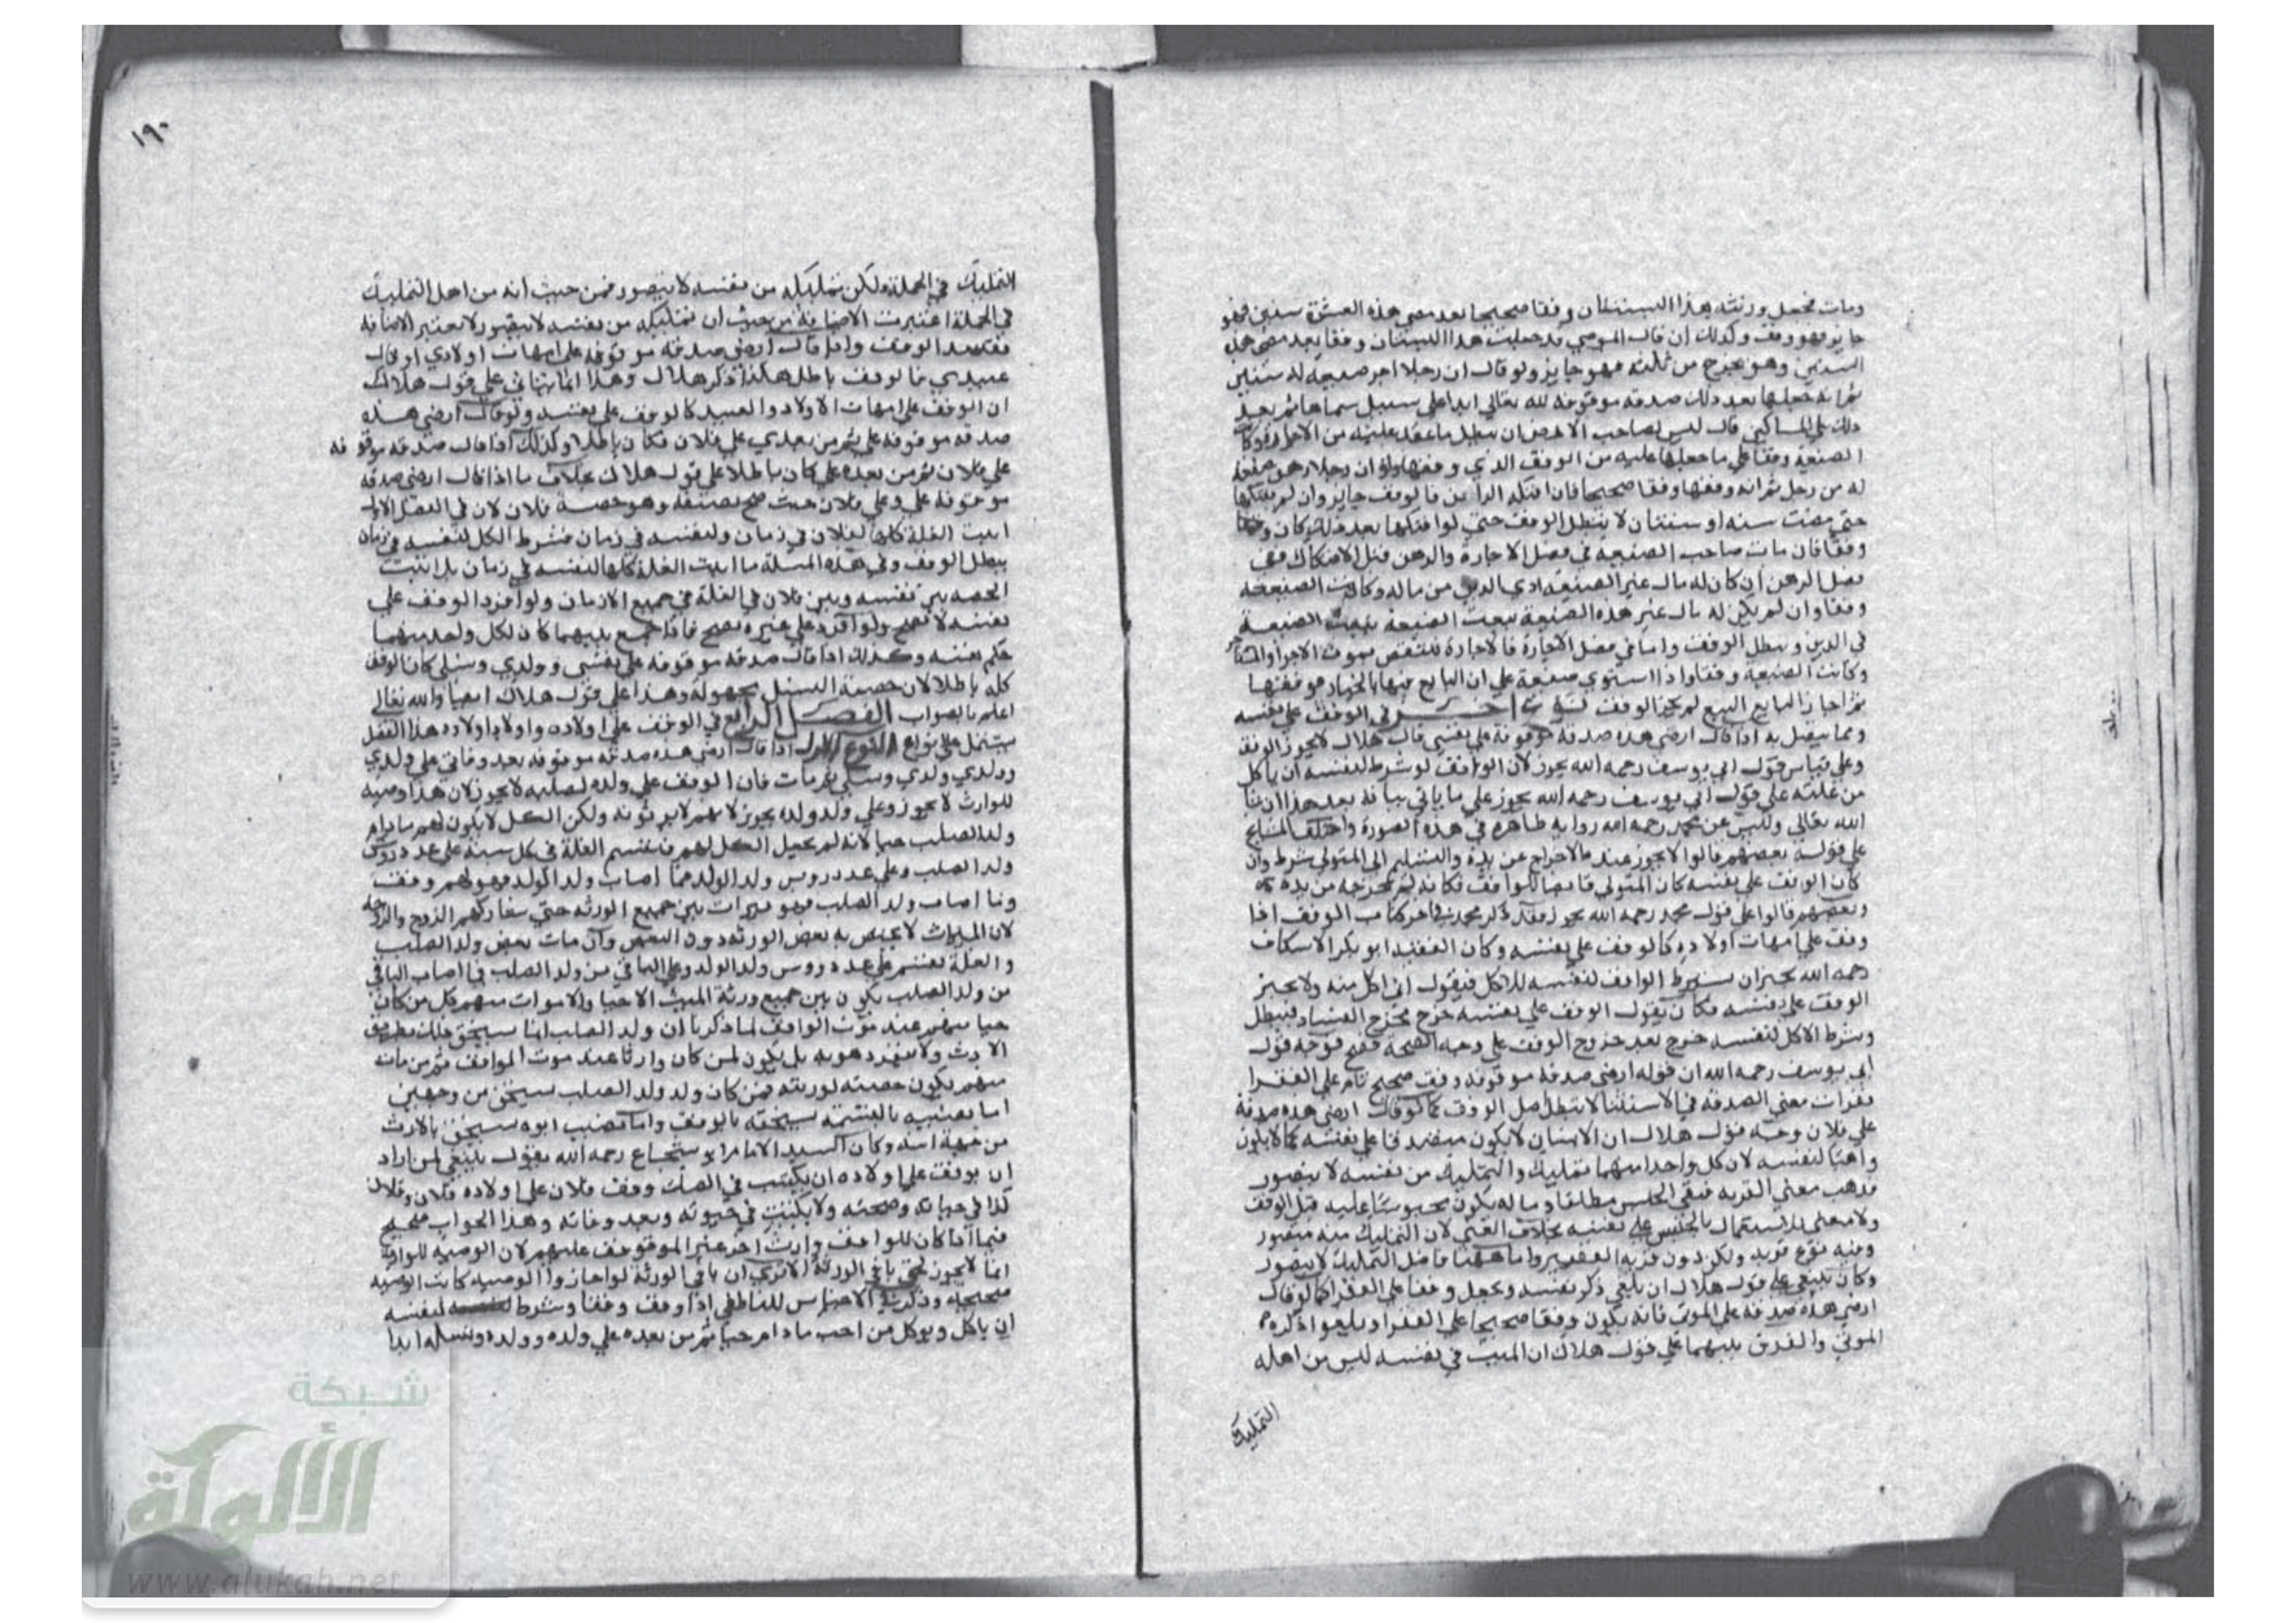 ومات فجعل ورثته هذا البستان وقفا صحيحا بعد مضي هذه العشرة سنين فهو
جايز فهو وقف وكذلك ان قال الموصي قد جعلت هذا البستان وقفا بعد مضي هذه
السنين وهو يخرج من ثلثه فهو جايز ولو قال ان رجلا اجر ضيعة له سنين
ثم انه جعلها بعد ذلك صدقة موقوفة لله تعالى ابدا على سبيل سماها ثم بعد
ذلك على المساكين قال ليس لصاحب الارض ان يبطل ما عقد عليه من الاجارة وكانت
الضيعة وقفا على ما جعلها عليه من الوقف الذي وقفها ولو ان رجلا رهن ضيعة
له من رجل ثم انه وقفها وقفا صحيحا فان افتكه الراهن فالوقف جايز وان لم يفتكها
حتى مضت سنة او سنتان لا يبطل الوقف حتى لو افتكها بعد ذلك كان وقفها
وقفا فان مات صاحب الضيعة في فصل الاجارة والرهن قبل الافتكاك ففي
فصل الرهن ان كان له مال غير الضيعة ادي الدين من ماله وكانت الضيعة
وقفا وان لم يكن له مال غير هذه الضيعة بيعت الضيعة
في الدين وبطل الوقف واما في فصل الاجارة فالاجارة تنتقض بموت الاجر او المستاجر
وكانت الضيعة وقفا واذا اشترى ضيعة على ان البايع فيها بالخيار فوقفها
ثم اجاز البايع البيع لم يجز الوقف نوع اخر في الوقف على نفسه
ومما يتصل به اذا قال ارضي هذه صدقة موقوفة على نفسي قال هلال لا يجوز الوقف
وعلى قياس قول ابي يوسف رحمه الله يجوز لان الواقف لو شرط لنفسه ان ياكل
من غلته على قول ابي يوسف رحمه الله يجوز على ما ياتي بيانه بعد هذا ان شا
الله تعالى وليس عن محمد رحمه الله رواية ظاهرة في هذه الصورة واختلف المشايخ
على قوله بعضهم قالوا لا يجوز عنده فالاخراج عن يده والتسليم الى المتولي شرط وان
كان الوقف على نفسه كان المتولي قابضا للواقف فكانه لم يخرجه من يده
وبعضهم قالوا على قول محمد رحمه الله يجوز فقد ذكر محمد في اخر كتاب الوقف اذا
وقف على امهات اولاده كالوقف على نفسه وكان الفقيه ابو بكر الاسكاف
رحمه الله يجيز ان يشترط الواقف لنفسه للاكل فيقول اني اكل منه ولا يجيز
الوقف على نفسه فكان يقول الوقف على نفسه خرج مخرج الفساد فيبطل
وشرط الاكل لنفسه خرج بعد خروج الوقف على وجه الصحة فصح فوجه قول
ابي يوسف رحمه الله ان قوله ارضي صدقة موقوفة وقف صحيح تام على الفقرا
معنى الصدقة في الاستثنا لا يبطل اصل الوقف كما لو قال ارضي هذه صدقة
على فلان وجه قول هلال ان الانسان لا يكون متصدقا على نفسه كما لا يكون
واهبا لنفسه لان كل واحد منهما تمليك والتمليك من نفسه لا يتصور
فذهب معنى القربة فبقي الحبس مطلقا وماله يكون محبوسا عليه قبل الوقف
ولا معنى للاشتغال بالحبس على نفسه بخلاف الغني لان التمليك منه متصور
وفيه نوع قربة ولكن دون قربة الفقير واما ههنا فاصل التمليك لا يتصور
وكان ينبغي على قول هلال ان يلغي ذكر نفسه ويجعل وقفا على الفقرا كما لو قال
ارضي هذه صدقة على الموتى فانه يكون وقفا صحيحا على الفقرا ويلغوا ذكره
الموتى والفرق بينهما على قول هلال ان الميت في نفسه ليس من اهله
التمليك
١٩٠
التمليك في الجملة ولكن تمليكه من نفسه لا يتصور فمن حيث انه من اهل التمليك
في الجملة اعتبرت الاضافة من حيث ان تمليكه من نفسه لا يتصور لا تعتبر الاضافة
فيفسد الوقف واذا قال ارضي صدقة موقوفة على امهات اولادي او قال
عبيدي فالوقف باطل هكذا ذكر هلال وهذا انما يتاتى على قول هلال
ان الوقف على امهات الاولاد والعبيد كالوقف على نفسه ولو قال ارضي هذه
صدقة موقوفة علي ثم من بعدي على فلان فكان باطلا وكذلك اذا قال صدقة موقوفة
على فلان ثم من بعده علي كان باطلا على قول هلال بخلاف ما اذا قال ارضي صدقة
موقوفة علي وعلى فلان حيث صح نصفه وهو حصة فلان لان في الفصل الاول
اثبت الغلة كلها لفلان في زمان ولنفسه في زمان فشرط الكل لنفسه في زمان
يبطل الوقف وفي هذه المسلة ما اثبت الغلة كلها لنفسه في زمان بل اثبت
الحصة بين نفسه وبين فلان في الغلة في جميع الازمان ولو افرد الوقف على
نفسه لا يصح ولو افرد على غيره يصح فاذا جمع بينهما كان لكل واحد منهما
حكم نفسه وكذلك اذا قال صدقة موقوفة على نفسي وولدي ونسلي كان الوقف
كله باطلا لان حصة النسل مجهولة وهذا على قول هلال ايضا والله تعالى
اعلم بالصواب الفصل الرابع في الوقف على اولاده واولاد اولاده هذا الفصل
يشتمل على انواع النوع الاول اذا قال ارضي هذه صدقة موقوفة بعد وفاتي على ولدي
وولدي ولدي ونسلي ثم مات فان الوقف على ولده لصلبه لا يجوز لان هذا وصية
للوارث لا يجوز وعلى ولد ولده يجوز لانهم لا يرثونه ولكن الكل لا يكون لهم ما دام
ولد الصلب حيا لانه لم يجعل الكل لهم فتقسم الغلة في كل سنة على عدد روس
ولد الصلب وعلى عدد روس ولد الولد فما اصاب ولد الولد فهو لهم وقف
وما اصاب ولد الصلب فهو ميراث بين جميع الورثة حتى يشاركهم الزوج والزوجة
لان الميراث لا يختص به بعض الورثة دون البعض وان مات بعض ولد الصلب
والغلة تقسم على عدد روس ولد الولد وعلى الباقي من ولد الصلب فما اصاب الباقي
من ولد الصلب يكون بين جميع ورثة الميت الاحيا والاموات منهم كل من كان
حيا منهم عند موت الواقف لما ذكرنا ان ولد الصلب انما يستحق ذلك بطريق
الارث ولا ينفرد هو به بل يكون لمن كان وارثا عند موت الواقف ثم من مات
منهم يكون حصته لورثته فمن كان ولد ولد الصلب يستحق من وجهين
اما نصيبه بالقسمة يستحقه بالوقف واما نصيب ابوه يستحق بالارث
من جهة ابيه وكان السيد الامام ابو شجاع رحمه الله يقول ينبغي لمن اراد
ان يوقف على اولاده ان يكتب في الصك وقف فلان على اولاده فلان وفلان
كذا في حياته وصحته ولا يكتب في حيوته وبعد وفاته وهذا الجواب صحيح
فيما اذا كان للواقف وارث اخر غير الموقوف عليهم لان الوصية للوارث
انما لا تجوز لحق باقي الورثة الا ترى ان باقي الورثة لو اجازوا الوصية كانت الوصية
صحيحة وذكر في الاجناس للناطفي اذا وقف وقفا وشرط لنفسه
ان ياكل ويوكل من احب ما دام حيا ثم من بعده على ولده وولد ولده ونسله ابدا
شبكة
الألوكة
www.alukah.net